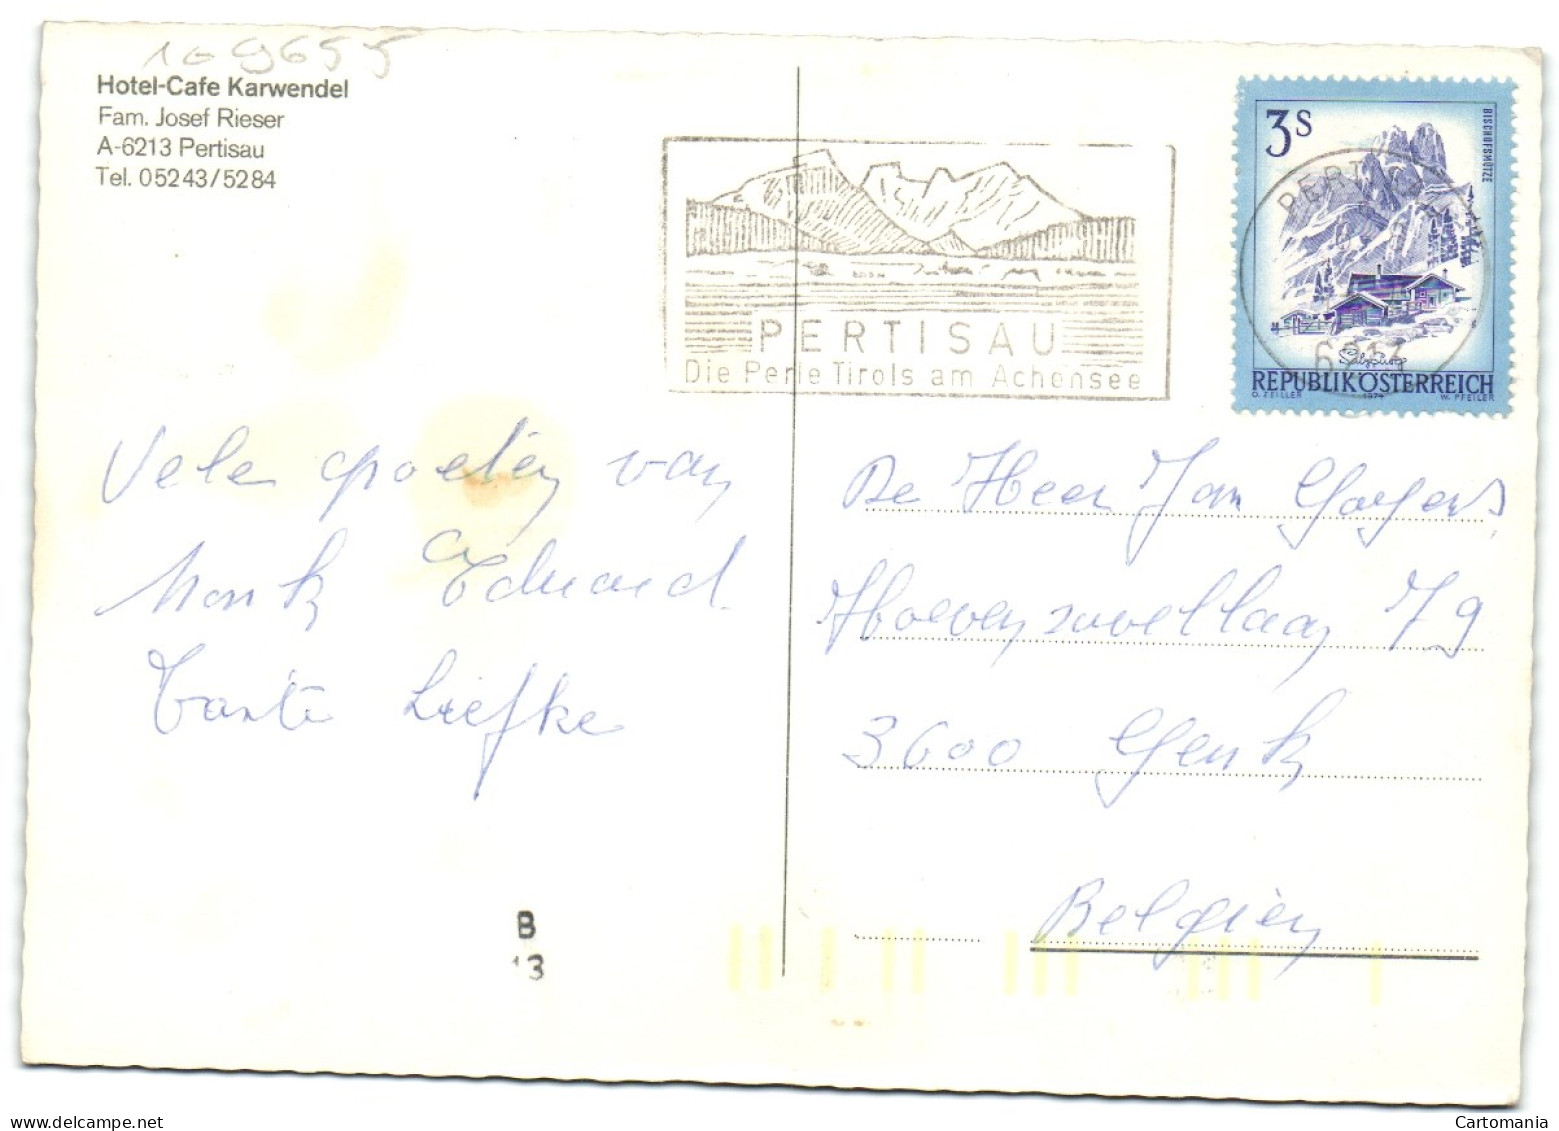 109655
Hotel-Cafe Karwendel
Fam. Josef Rieser
A-6213 Pertisau
Tel. 05243/5284
PERTISAU
Die Perle Tirols am Achensee
3S
BISCHOFSMÜTZE
Salzburg
REPUBLIK ÖSTERREICH
O. ZEILLER 1974 W. PFEILER
PERTISAU
6213
Vele groeten van
Nonk Eduard
Tante Liefke
De Heer Jan
Hoevenzavellaan 79
3600 Genk
Belgien
B
13
www.delcampe.net
Cartomania